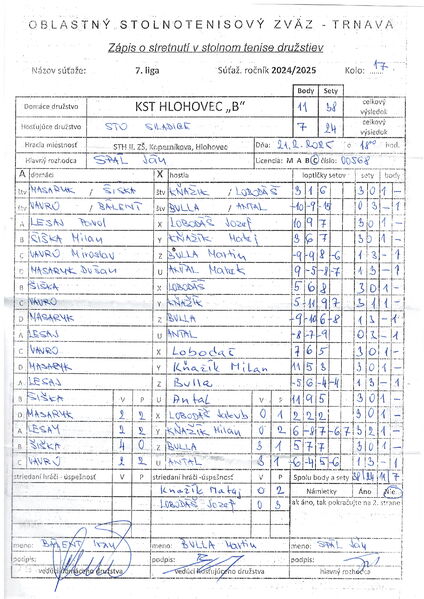 OBLASTNÝ STOLNOTENISOVÝ ZVÄZ - TRNAVA
Zápis o stretnutí v stolnom tenise družstiev
Názov súťaže: 7. liga Súťaž. ročník 2024/2025 Kolo: 17
Body Sety
Domáce družstvo KST HLOHOVEC „B" 11 38 celkový výsledok
Hosťujúce družstvo STO SILADICE 7 24 celkový výsledok
Hracia miestnosť STH II. ZŠ, Kopernikova, Hlohovec Dňa: 21.2.2025 o 18 00 hod.
Hlavný rozhodca SPÁL Ján Licencia: M A B C číslo: 00568
A domáci X hostia loptičky setov sety body
štv MASARYK / ŠIŠKA štv KŇAŽÍK / LOBODÁŠ 3 1 6 3 0 1 -
štv VAVRO / BALENT štv BULLA / ANTAL -10 -9 -15 0 3 - 1
A LESAJ Pavol X LOBODÁŠ Jozef 10 9 7 3 0 1 -
B ŠIŠKA Milan Y KŇAŽÍK Matej 3 6 7 3 0 1 -
C VAVRO Miroslav Z BULLA Martin -9 -9 8 -6 1 3 - 1
D MASARYK Dušan U ANTAL Marek -9 -5 8 -7 1 3 - 1
B ŠIŠKA X LOBODÁŠ 5 6 8 3 0 1 -
C VAVRO Y KŇAŽÍK 5 -11 9 7 3 1 1 -
D MASARYK Z BULLA -9 -10 6 -8 1 3 - 1
A LESAJ U ANTAL -8 -7 -9 0 3 - 1
C VAVRO X Lobodáš 7 6 5 3 0 1 -
D MASARYK Y Kňažík Milan 11 5 3 3 0 1 -
A LESAJ Z Bulla -5 6 -4 -4 1 3 - 1
B ŠIŠKA V P U Antal V P 11 9 5 3 0 1 -
D MASARYK 2 2 X LOBODÁŠ Jakub 0 1 2 2 2 3 0 1 -
A LESAJ 2 2 Y KŇAŽÍK Milan 0 2 6 -8 7 -6 7 3 2 1 -
B ŠIŠKA 4 0 Z BULLA 3 1 5 7 7 3 0 1 -
C VAVRO 2 2 U ANTAL 3 1 -6 -4 5 -6 1 3 - 1
striedaní hráči - úspešnosť V P striedaní hráči - úspešnosť V P Spolu body a sety 38 24 11 7
Kňažík Matej 0 2 Námietky Áno Nie
LOBODÁŠ Jozef 0 3 ak áno, tak pokračujte na 2. strane
meno: BALENT meno: BULLA Martin meno: SPÁL Ján
podpis: podpis: podpis:
vedúci domáceho družstva vedúci hosťujúceho družstva hlavný rozhodca